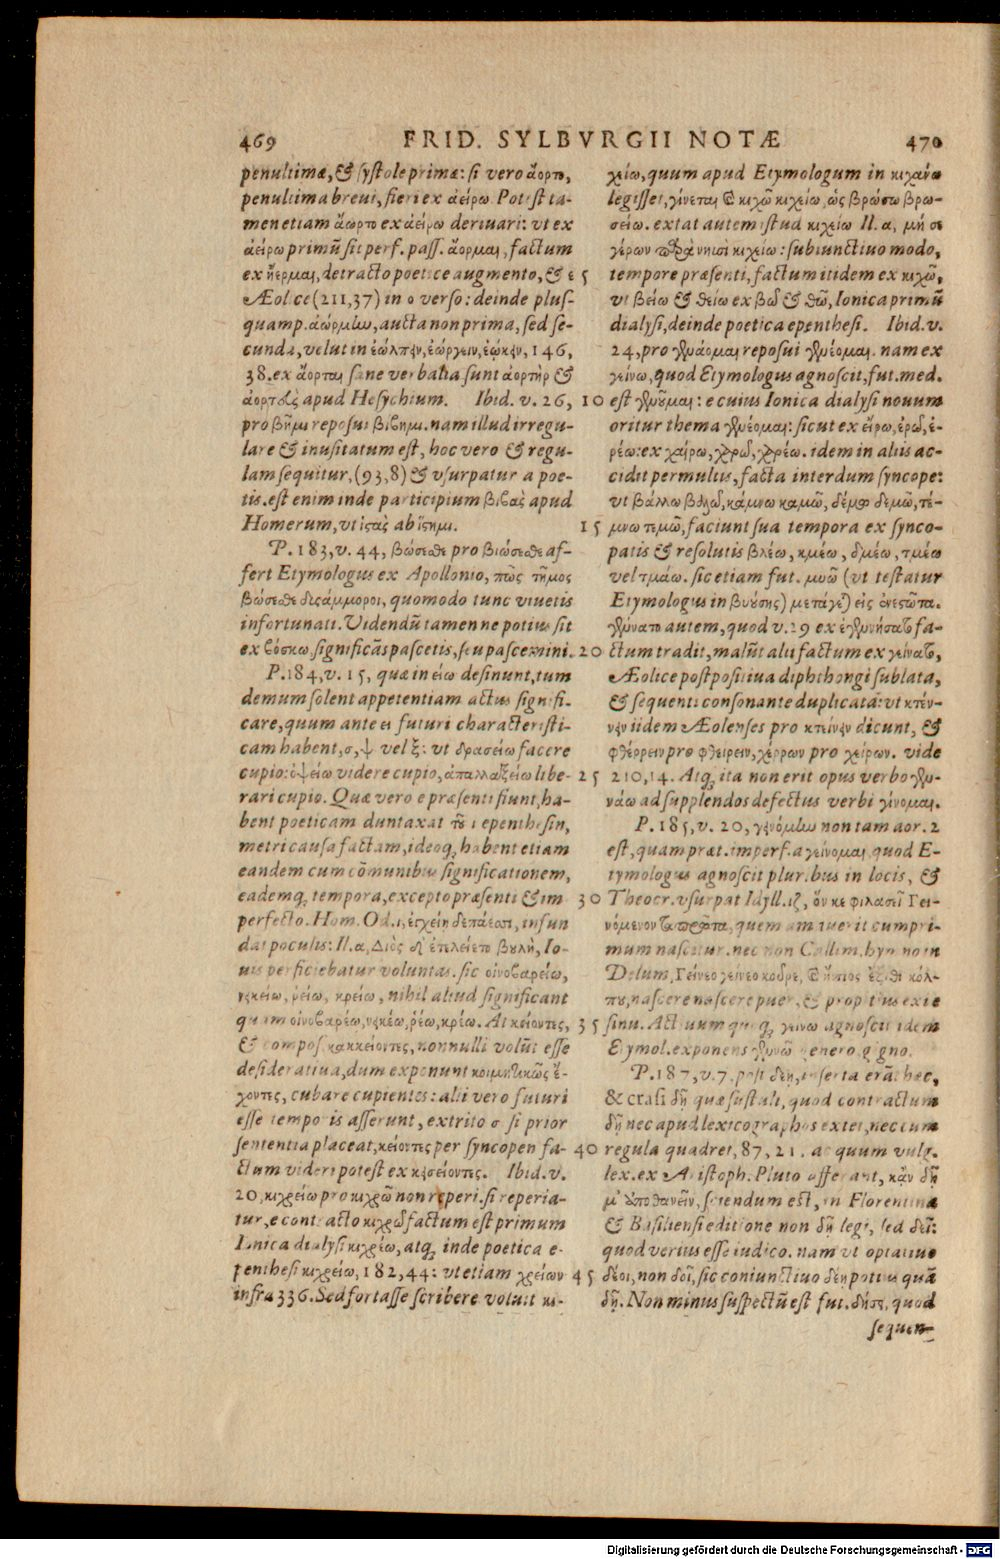 469 FRID. SYLBVRGII NOTÆ 470
penultimæ, & systole primæ: si vero ἄορτο,
penultima breui, fieri ex ἀείρω. Potest ta-
men etiam ἄωρτο ex ἀείρω deriuari: vt ex
ἀείρω primũ sit perf. pass. ἄορμαι, factum
ex ἤερμαι, detracto poetice augmento, & ε
Æolice (211,37) in ο verso: deinde plus-
quamp. ἀώρμην, aucta non prima, sed se-
cunda, velut in ἐώλπειν, ἐώργειν, ἐῴκειν, 146,
38. ex ἄορται sane verbalia sunt ἀορτὴρ &
ἀορτὰς apud Hesychium. Ibid. v. 26,
pro βῆμι reposui βίβημι. nam illud irregu-
lare & inusitatum est, hoc vero & regu-
lam sequitur, (93,8) & vsurpatur a poe-
tis. est enim inde participium βιβὰς apud
Homerum, vt ἱστὰς ab ἵστημι.
P. 183, v. 44, βώσεσθε pro βιώσεσθε af-
fert Etymologus ex Apollonio, πῶς τῆμος
βώσεσθε δυσάμμοροι, quomodo tunc viuetis
infortunati. Videndũ tamen ne potius sit
ex βόσκω, significãs pascetis, seu pascemini.
P. 184, v. 15, quæ in είω desinunt, tum
demum solent appetentiam actus signifi-
care, quum ante ει futuri characteristi-
cam habent, σ, ψ vel ξ: vt δρασείω facere
cupio: ὀψείω videre cupio, ἀπαλλαξείω libe-
rari cupio. Quæ vero e præsenti fiunt, ha-
bent poeticam duntaxat τοῦ ι epenthesin,
metri causa factam, ideoq; habent etiam
eandem cum cõmunibus significationem,
eademq; tempora, excepto præsenti & im
perfecto. Hom. Od. ι, ἐγχείη δεπάεσσι, infun
dat poculis: Il. α, Διὸς δ' ἐτελείετο βουλὴ, Io-
uis perficiebatur voluntas. sic οἰνοβαρείω,
νεικείω, ῥείω, κρείω, nihil aliud significant
quam οἰνοβαρέω, νεικέω, ῥέω, κρέω. At κείοντες,
& compos. κακκείοντες, nonnulli volũt esse
desideratiua, dum exponunt κοιμητικῶς ἔ-
χοντες, cubare cupientes: alii vero futuri
esse temporis asserunt, extrito σ si prior
sententia placeat, κείοντες per syncopen fa-
ctum videri potest ex κεισείοντες. Ibid. v.
20, κιχρείω pro κιχρῶ non reperi. si reperia-
tur, e contracto κιχρῶ factum est primum
Ionica dialysi κιχρέω, atq; inde poetica e-
penthesi κιχρείω, 182,44: vt etiam χρείων
infra 336. Sed fortasse scribere voluit κι-
5
10
15
20
25
30
35
40
45
χείω, quum apud Etymologum in κιχάνω
legisset, γίνεται ἐκ τοῦ κιχῶ κιχείω, ὡς βρώσω βρω-
σείω. extat autem istud κιχείω Il. α, μή σε
γέρων παρὰ νηυσὶ κιχείω: subiunctiuo modo,
tempore præsenti, factum itidem ex κιχῶ,
vt βείω & θείω ex βῶ & θῶ, Ionica primũ
dialysi, deinde poetica epenthesi. Ibid. v.
24, pro γενάομαι reposui γενέομαι. nam ex
γείνω, quod Etymologus agnoscit, fut. med.
est γενοῦμαι: e cuius Ionica dialysi nouum
oritur thema γενέομαι: sicut ex εἴρω, ἐρῶ, ἐ-
ρέω: ex χαίρω, χαρῶ, χαρέω. idem in aliis ac-
cidit permultis, facta interdum syncope:
vt βάλλω βαλῶ, κάμνω καμῶ, δέμω δεμῶ, τέ-
μνω τεμῶ, faciunt sua tempora ex synco-
patis & resolutis βλέω, κμέω, δμέω, τμέω
vel τμάω. sic etiam fut. μυῶ (vt testatur
Etymologus in βυύσης) μετάγεται εἰς ἐνεστῶτα.
γένατο autem, quod v. 29 ex ἐγενήσατο fa-
ctum tradit, malũt alii factum ex γείνατο,
Æolice postpositiua diphthongi sublata,
& sequenti consonante duplicata: vt κτέν-
νειν iidem Æolenses pro κτείνειν dicunt, &
φθέρρειν pro φθείρειν, χέρρων pro χείρων. vide
210,14. Atq; ita non erit opus verbo γε-
νάω ad supplendos defectus verbi γίνομαι.
P. 185, v. 20, γεινόμην non tam aor. 2
est, quam præt. imperf. a γείνομαι, quod E-
tymologus agnoscit pluribus in locis, &
Theocr. vsurpat Idyll. ιζ, ὅν κε φιλασεῖ Γει-
νόμενον τὰ πρῶτα, quem amauerit cumpri-
mum nascitur. nec non Callim. hymno in
Delum, Γείνεο γείνεο κοῦρε, καὶ ἤπιος ἔξιθι κόλ-
που, nascere nascere puer, & propitius exi e
sinu. Actiuum quoq; γείνω agnoscit idem
Etymol. exponens γεννῶ genero gigno.
P. 187, v. 7. post δέῃ, inserta erãt hæc,
& crasi δῇ quæ sustuli, quod contractum
δῇ nec apud lexicographos extet, nec cum
regula quadret, 87, 21. ac quum vulg.
lex. ex Aristoph. Pluto afferant, κἂν δῇ
μ' ἀποθανεῖν, sciendum est, in Florentina
& Basiliensi editione non δῇ legi, sed δεῖ:
quod verius esse iudico. nam vt optatiuo
δέοι, non δοῖ, sic coniunctiuo δέῃ potius quã
δῇ. Non minus suspectũ est fut. δήσει, quod
sequen-
Digitalisierung gefördert durch die Deutsche Forschungsgemeinschaft - DFG